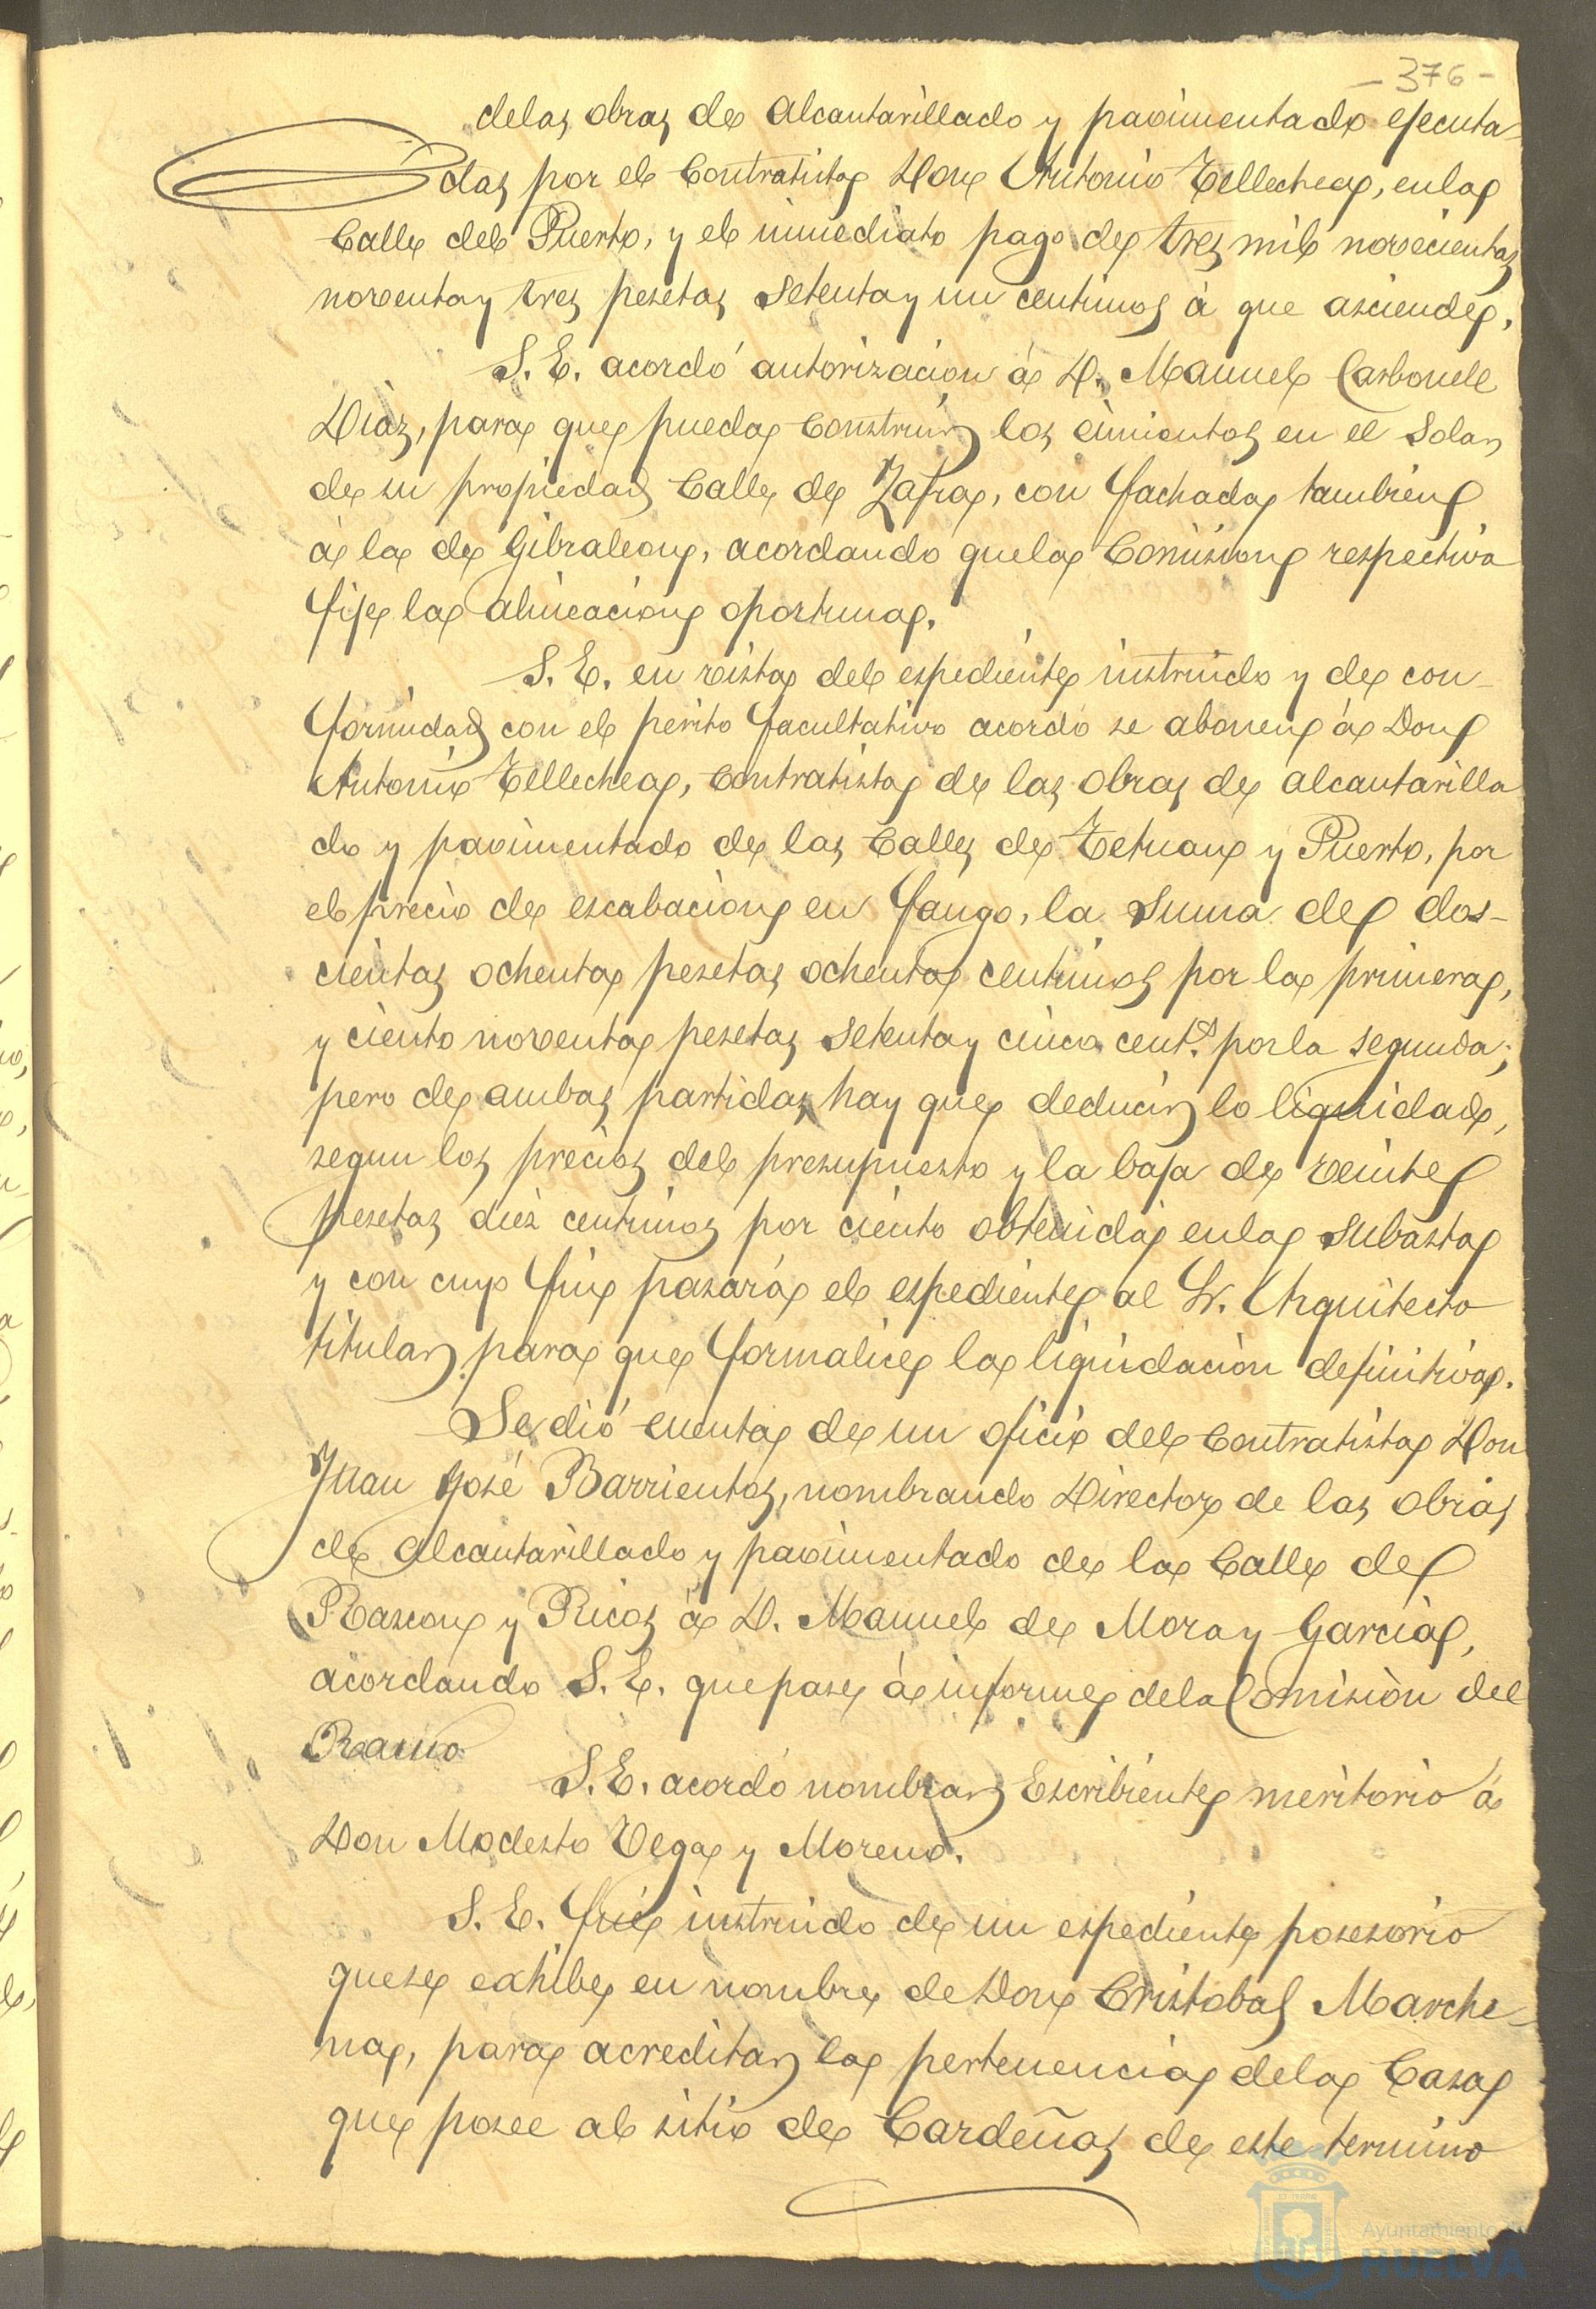 - 376 -
de las obras de Alcantarillado y pavimentado ejecuta-
das por el Contratista Don Antonio Tellechea, en la
Calle del Puerto, y el inmediato pago de tres mil novecientas
noventa y tres pesetas setenta y un centimos á que asciende.
S. E. acordó autorizacion á D. Manuel Carbonell
Diaz, para que pueda Construir los cimientos en el Solar
de su propiedad Calle de Zafra, con fachada tambien
á la de Gibraleon, acordando que la Comision respectiva
fije la alineacion oportuna.
S. E. en vista del espediente instruido y de con-
formidad con el perito facultativo acordó se abonen á Don
Antonio Tellechea, Contratista de las obras de alcantarilla
do y pavimentado de las Calles de Tetuan y Puerto, por
el precio de escabacion en fango, la suma de dos-
cientas ochenta pesetas ochenta centimos por la primera,
y ciento noventa pesetas setenta y cinco cent.s por la segunda;
pero de ambas partidas hay que deducir lo liquidado,
segun los precios del presupuesto y la baja de veinte
pesetas diez centimos por ciento obtenida en la subasta
y con cuyo fin pasará el espediente al Sr. Arquitecto
titular para que formalice la liquidacion definitiva.
Se dió cuenta de un oficio del Contratista Don
Juan José Barrientos, nombrando Director de las obras
de Alcantarillado y pavimentado de la Calle de
Rascon y Ricos á D. Manuel de Mora y Garcia,
acordando S. E. que pase á informe de la Comision del
Ramo
S. E. acordó nombrar Escribiente meritorio á
Don Modesto Vega y Moreno.
S. E. fué instruido de un espediente posesorio
que se exhibe en nombre de Don Cristobal Marche-
na, para acreditar la pertenencia de la Casa
que posee al sitio de Cardeñas de este termino
Ayuntamiento de
HUELVA